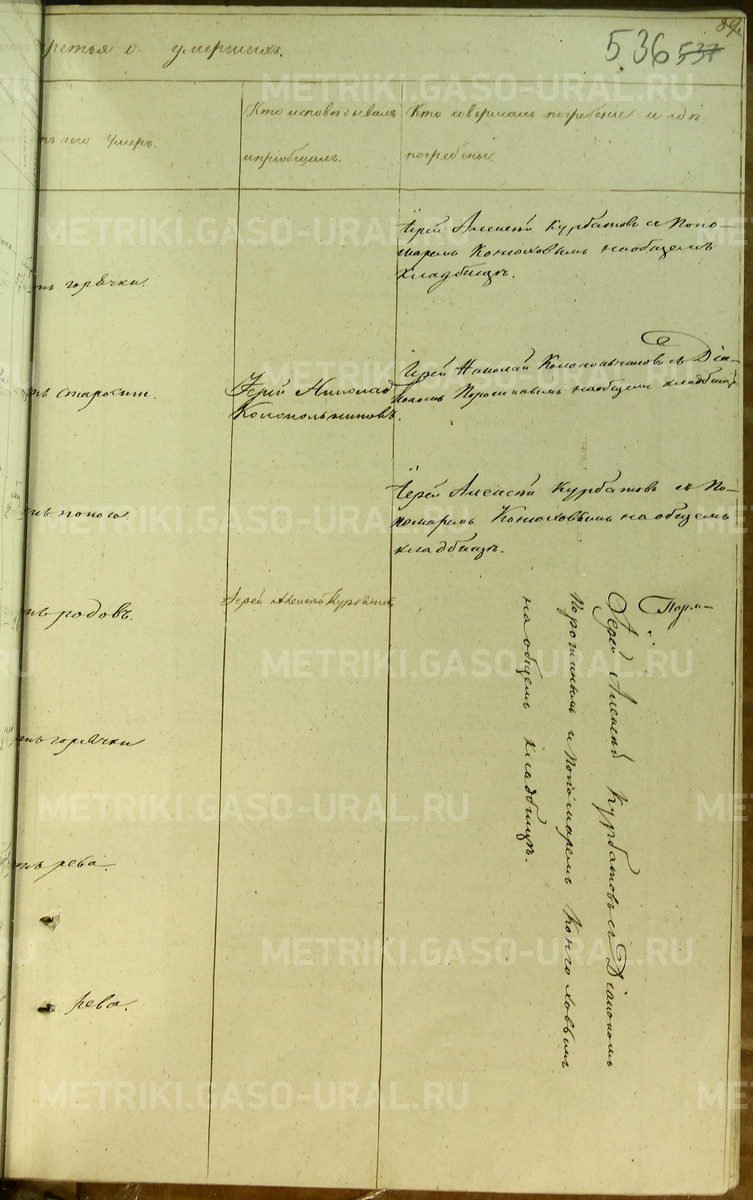 89.
536 537
ретья о умершихъ.
тъ чего умеръ.
Кто исповѣдывалъ
и приобщалъ.
Кто совершалъ погребение и гдѣ
погребены.
тъ горячки.
Іерей Алексѣй Курбатовъ съ Поно-
маремъ Конюховымъ на общемъ
кладбищѣ.
тъ старости.
Іерей Николай
Колокольниковъ.
Іерей Николай Колокольниковъ съ Діа-
кономъ Порошинымъ на общемъ кладбищѣ
тъ поноса
Іерей Алексѣй Курбатовъ съ По-
номаремъ Конюховымъ на общемъ
кладбищѣ.
тъ родовъ.
Іерей Алексѣй Курбатовъ
тъ горячки
тъ рева.
рева.
Іерей Алексѣй Курбатовъ съ Діакономъ
Порошинымъ и Пономаремъ Конюховымъ
на общемъ кладбищѣ.
METRIKI.GASO-URAL.RU